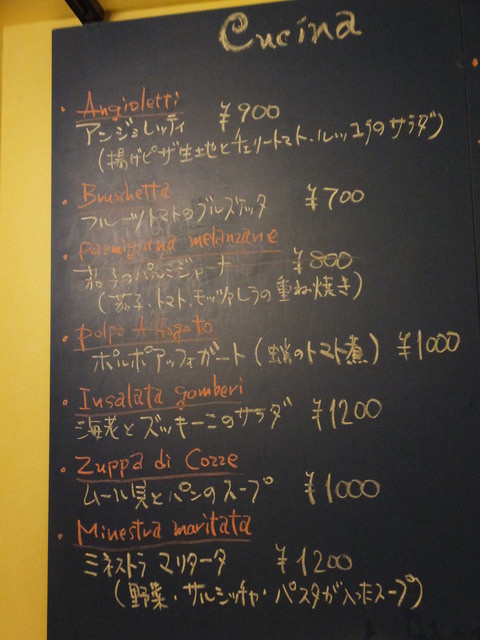 Cucina
• Angioletti
アンジョレッティ ¥900
(揚げピザ生地とチェリートマト・ルッコラのサラダ)
• Bruschetta
フルーツトマトのブルスケッタ ¥700
• parmigiana melanzane
茄子のパルミジャーナ ¥800
(茄子・トマト・モッツァレラの重ね焼き)
• polpo Affogato
ポルポアッフォガート (蛸のトマト煮) ¥1000
• Insalata gamberi
海老とズッキーニのサラダ ¥1200
• Zuppa di Cozze
ムール貝とパンのスープ ¥1000
• Minestra maritata
ミネストラ マリタータ ¥1200
(野菜・サルシッチャ・パスタが入ったスープ)